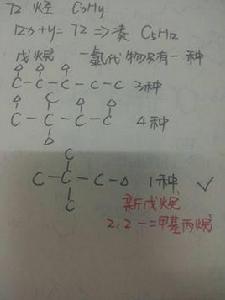 72 烃 CxHy
12x+y=72 => 戊 C5H12
戊烷 一氯代物只有一种
C-C-C-C-C 3种
C-C-C-C 4种
C
C-C-C-C 1种 √
C
新戊烷
2,2-二甲基丙烷